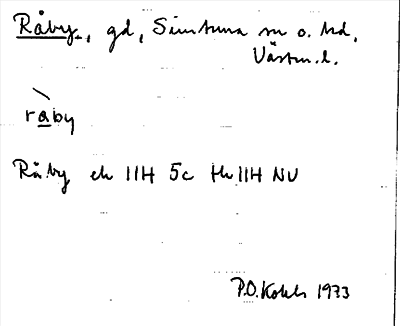 Råby, gd, Simtuna sn o. hd,
Västm. l.
råby
Råby ek 11H 5c tk 11H NV
P.O. 1933